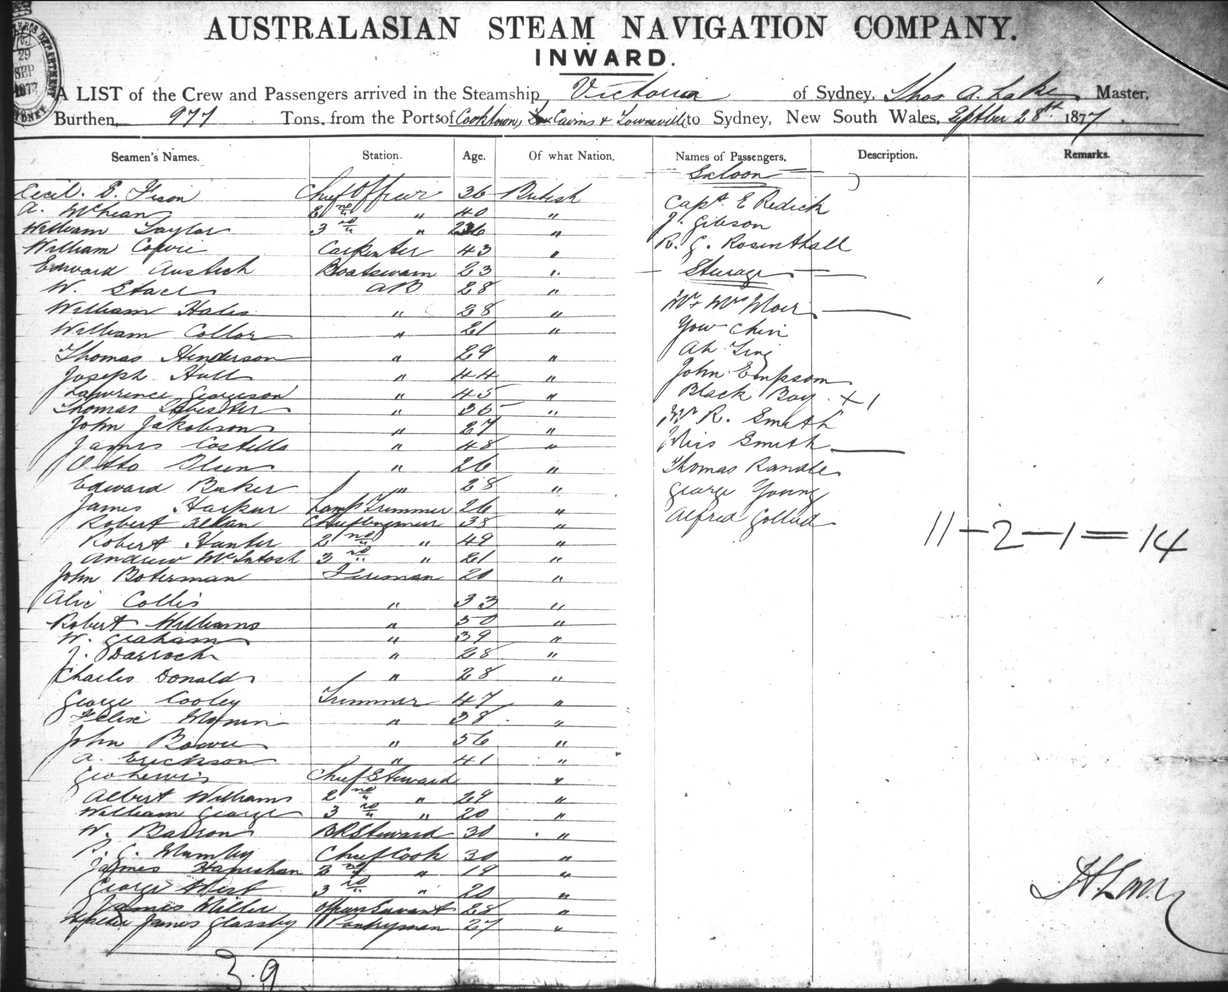 29
SEP
1877
SYDNEY
AUSTRALASIAN STEAM NAVIGATION COMPANY.
INWARD.
A LIST of the Crew and Passengers arrived in the Steamship Victoria of Sydney, Thos A. Lake Master,
Burthen, 977 Tons, from the Ports of Cooktown, Cairns & Townsville to Sydney, New South Wales, 28th 1877.
Seamen's Names. Station. Age. Of what Nation. Names of Passengers. Description. Remarks.
Cecil. E. Chief Officer 36 British
A. McLean 2nd " 40 "
William Taylor 3rd " "
William Carpenter 43 "
Edward Boatswain 23 "
W. AB 28 "
William Hales " 28 "
William Collor " 21 "
Thomas Henderson " 29 "
Joseph Hull " 44 "
Lawrence " 45 "
Thomas " 35 "
John Jakobson " 27 "
James Costello " 48 "
Otto " 26 "
Edward Baker " 28 "
James Harper Lamp Trimmer 26 "
Robert Allan Chief Engineer 38 "
Robert Hunter 2nd " 49 "
Andrew McIntosh 3rd " 21 "
John Boterman Fireman 20 "
Collis " 33 "
Robert Williams " 50 "
W. Graham " 39 "
J. Darroch " 28 "
Charles Donald " 28 "
George Cooley Trimmer 47 "
Felix " 38 "
John " 56 "
A. Erickson " 41 "
Geo Lewis Chief Steward "
Albert Williams 2nd " 29 "
William George 3rd " 20 "
W. Barron Steward 30 "
P. C. Mumby Chief Cook 30 "
James Hanrahan 2nd " 19 "
George West 3rd " 20 "
James Miller Officers Servant 28 "
James Glassby Pantryman 27 "
39
Saloon
Capt E Redick
J. Gibson
R. G. Rosenthall
Steerage
Mr & Mrs Moir
Yow Chin
Ah Ting
John Empson
Black Boy + 1
Mr R. Smith
Miss Smith
Thomas Randle
George Young
Alfred
11 - 2 - 1 = 14